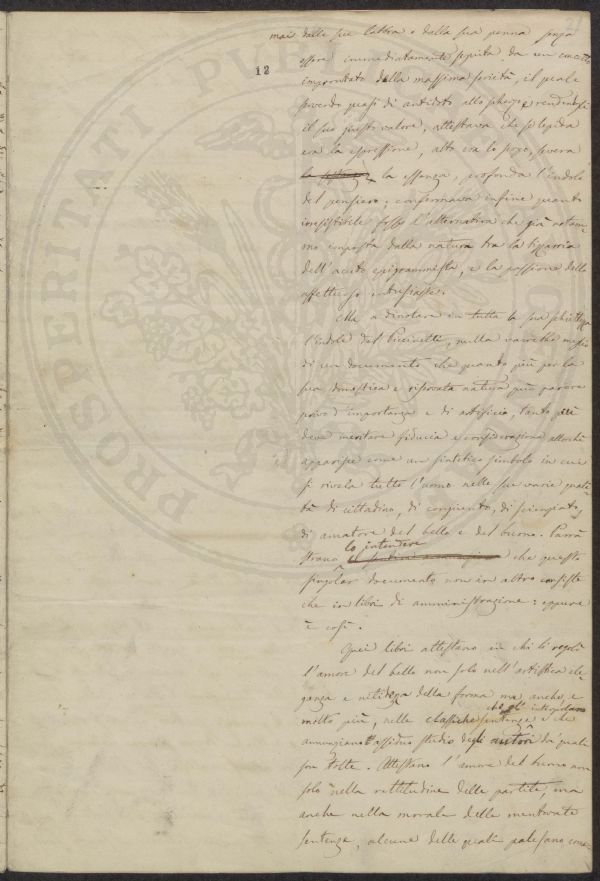 21
mai dalle sue labbra o dalla sua penna senza
12
essere immediatamente seguita da un concetto
improntato della massima serietà, il quale
servendo quasi di antidoto allo scherzo e rendendosi
il suo giusto valore, attestava che se lepida
era la espressione, alto era lo scopo, severa
la essenza, profonda l'indole
del pensiero; confermava infine quanto
irresistibile fosse l'alternativa che già notam-
mo composta dalla natura tra la bizzarria
dell'acuto epigrammista, e la passione dello
affettuoso entusiasta.
Ma a dinotare in tutta la sua schiettezza
l'indole del Piccinelli, nulla varrebbe meglio
di un documento che quanto più per la
sua domestica e riservata natura può parere
privo d'importanza e di artificio, tanto più
deve meritare fiducia e considerazione allorchè
apparisce come un sintetico simbolo in cui
si rivela tutto l'uomo nelle sue varie quali-
tà di cittadino, di congiunto, di scienziato,
di amatore del bello e del buono. Parrà
lo intendere
strano che questo
singolar documento non in altro consiste
che in libri di amministrazione: eppure
è così.
Quei libri attestano in chi li regolò
l'amore del bello non solo nell'artistica ele-
ganza e nitidezza della forma ma anche e
molto più, nelle classiche sentenze che gl'intercalano e che
annunziano l'assiduo studio degli autori da' quali
son tolte. Attestano l'amore del buono non
solo nella rettitudine delle partite, ma
anche nella morale delle mentovate
sentenze, alcune delle quali palesano come